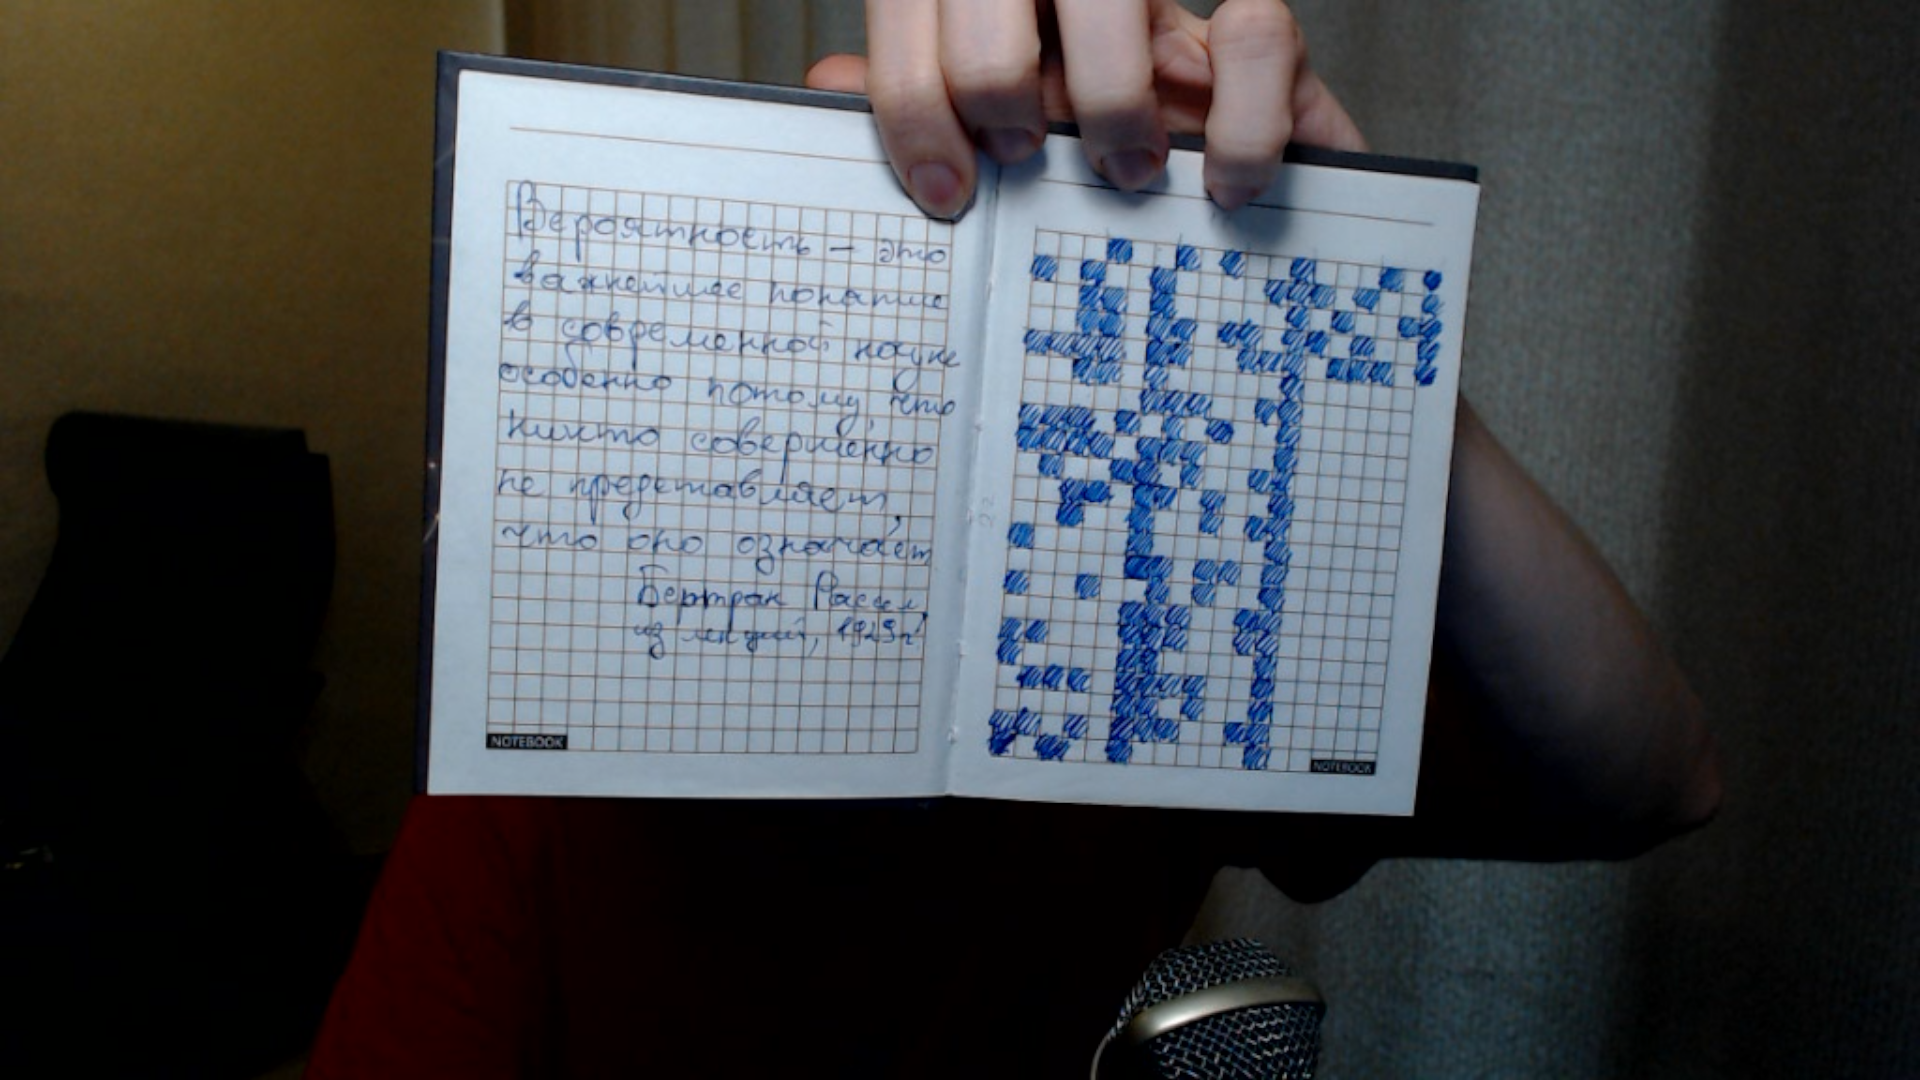 Вероятность – это
важнейшее понятие
в современной науке
особенно потому, что
никто совершенно
не представляет,
что оно означает
Бертран Рассел,
из лекций, 1929г.
NOTEBOOK
22
NOTEBOOK